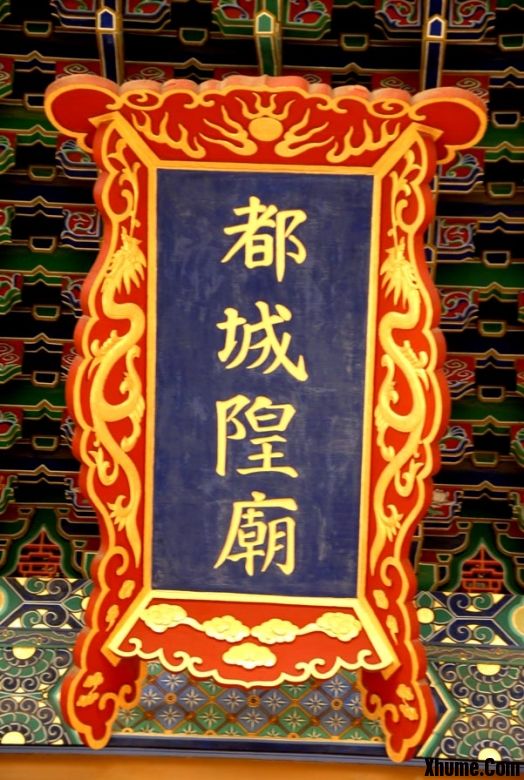 都城隍廟
Xhume.Com